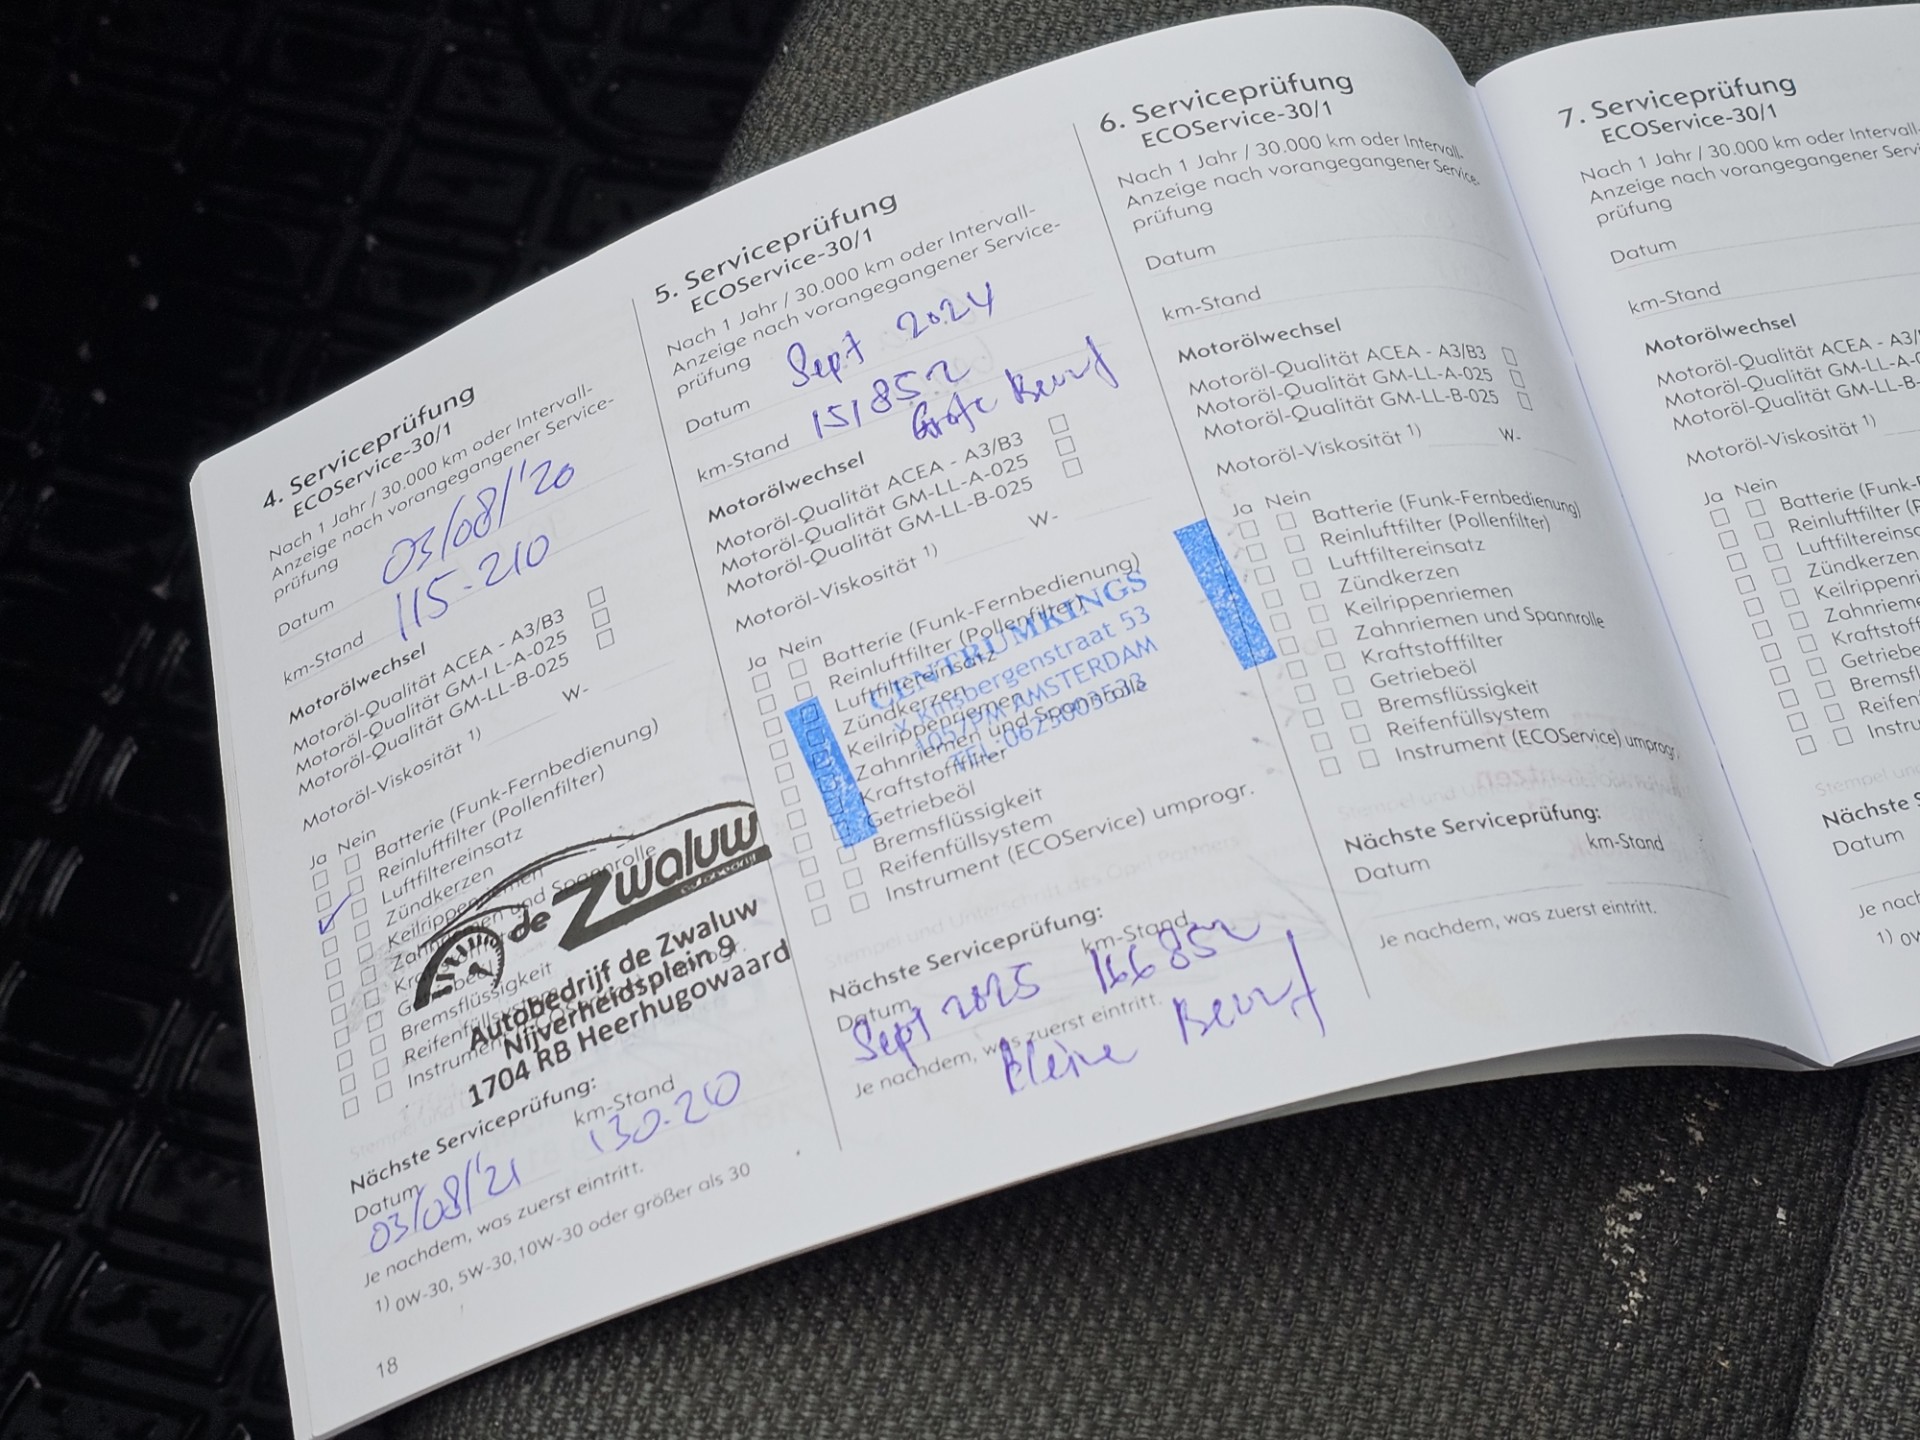 4. Serviceprüfung
ECOService-30/1
Nach 1 Jahr / 30.000 km oder Intervall-
Anzeige nach vorangegangener Service-
prüfung
Datum 03/08/'20
km-Stand 115-210
Motorölwechsel
Motoröl-Qualität ACEA - A3/B3
Motoröl-Qualität GM-LL-A-025
Motoröl-Qualität GM-LL-B-025
Motoröl-Viskosität 1) W-
Ja Nein
Batterie (Funk-Fernbedienung)
Reinluftfilter (Pollenfilter)
Luftfiltereinsatz
Zündkerzen
Keilrippenriemen
Zahnriemen und Spannrolle
Bremsflüssigkeit
de Zwaluw
autobedrijf
Autobedrijf de Zwaluw
Nijverheidsplein 9
1704 RB Heerhugowaard
Nächste Serviceprüfung:
Datum km-Stand
03/08/'21 130-210
Je nachdem, was zuerst eintritt.
1) 0W-30, 5W-30, 10W-30 oder größer als 30
18
5. Serviceprüfung
ECOService-30/1
Nach 1 Jahr / 30.000 km oder Intervall-
Anzeige nach vorangegangener Service-
prüfung
Datum Sept 2024
km-Stand 151852
Grote Beurt
Motorölwechsel
Motoröl-Qualität ACEA - A3/B3
Motoröl-Qualität GM-LL-A-025
Motoröl-Qualität GM-LL-B-025
Motoröl-Viskosität 1) W-
Ja Nein
Batterie (Funk-Fernbedienung)
Reinluftfilter (Pollenfilter)
Luftfiltereinsatz
Zündkerzen
Keilrippenriemen
Zahnriemen und Spannrolle
Kraftstofffilter
Getriebeöl
Bremsflüssigkeit
Reifenfüllsystem
Instrument (ECOService) umprogr.
CENTRUMKINGS
53
AMSTERDAM
Stempel und Unterschrift des Opel Partners
Nächste Serviceprüfung:
Datum km-Stand
Sept 2025 166852
Je nachdem, was zuerst eintritt.
Kleine Beurt
6. Serviceprüfung
ECOService-30/1
Nach 1 Jahr / 30.000 km oder Intervall-
Anzeige nach vorangegangener Service-
prüfung
Datum
km-Stand
Motorölwechsel
Motoröl-Qualität ACEA - A3/B3
Motoröl-Qualität GM-LL-A-025
Motoröl-Qualität GM-LL-B-025
Motoröl-Viskosität 1) W-
Ja Nein
Batterie (Funk-Fernbedienung)
Reinluftfilter (Pollenfilter)
Luftfiltereinsatz
Zündkerzen
Keilrippenriemen
Zahnriemen und Spannrolle
Kraftstofffilter
Getriebeöl
Bremsflüssigkeit
Reifenfüllsystem
Instrument (ECOService) umprogr.
Nächste Serviceprüfung:
Datum km-Stand
Je nachdem, was zuerst eintritt.
7. Serviceprüfung
ECOService-30/1
Nach 1 Jahr / 30.000 km oder Intervall-
Anzeige nach vorangegangener Servi
prüfung
Datum
km-Stand
Motorölwechsel
Motoröl-Qualität ACEA - A3/
Motoröl-Qualität GM-LL-A-0
Motoröl-Qualität GM-LL-B-
Motoröl-Viskosität 1)
Ja Nein
Batterie (Funk-F
Reinluftfilter (P
Luftfiltereinsa
Zündkerzen
Keilrippenri
Zahnrieme
Kraftstoff
Getriebe
Bremsfl
Reifen
Instru
Nächste S
Datum
Je nach
1) 0W